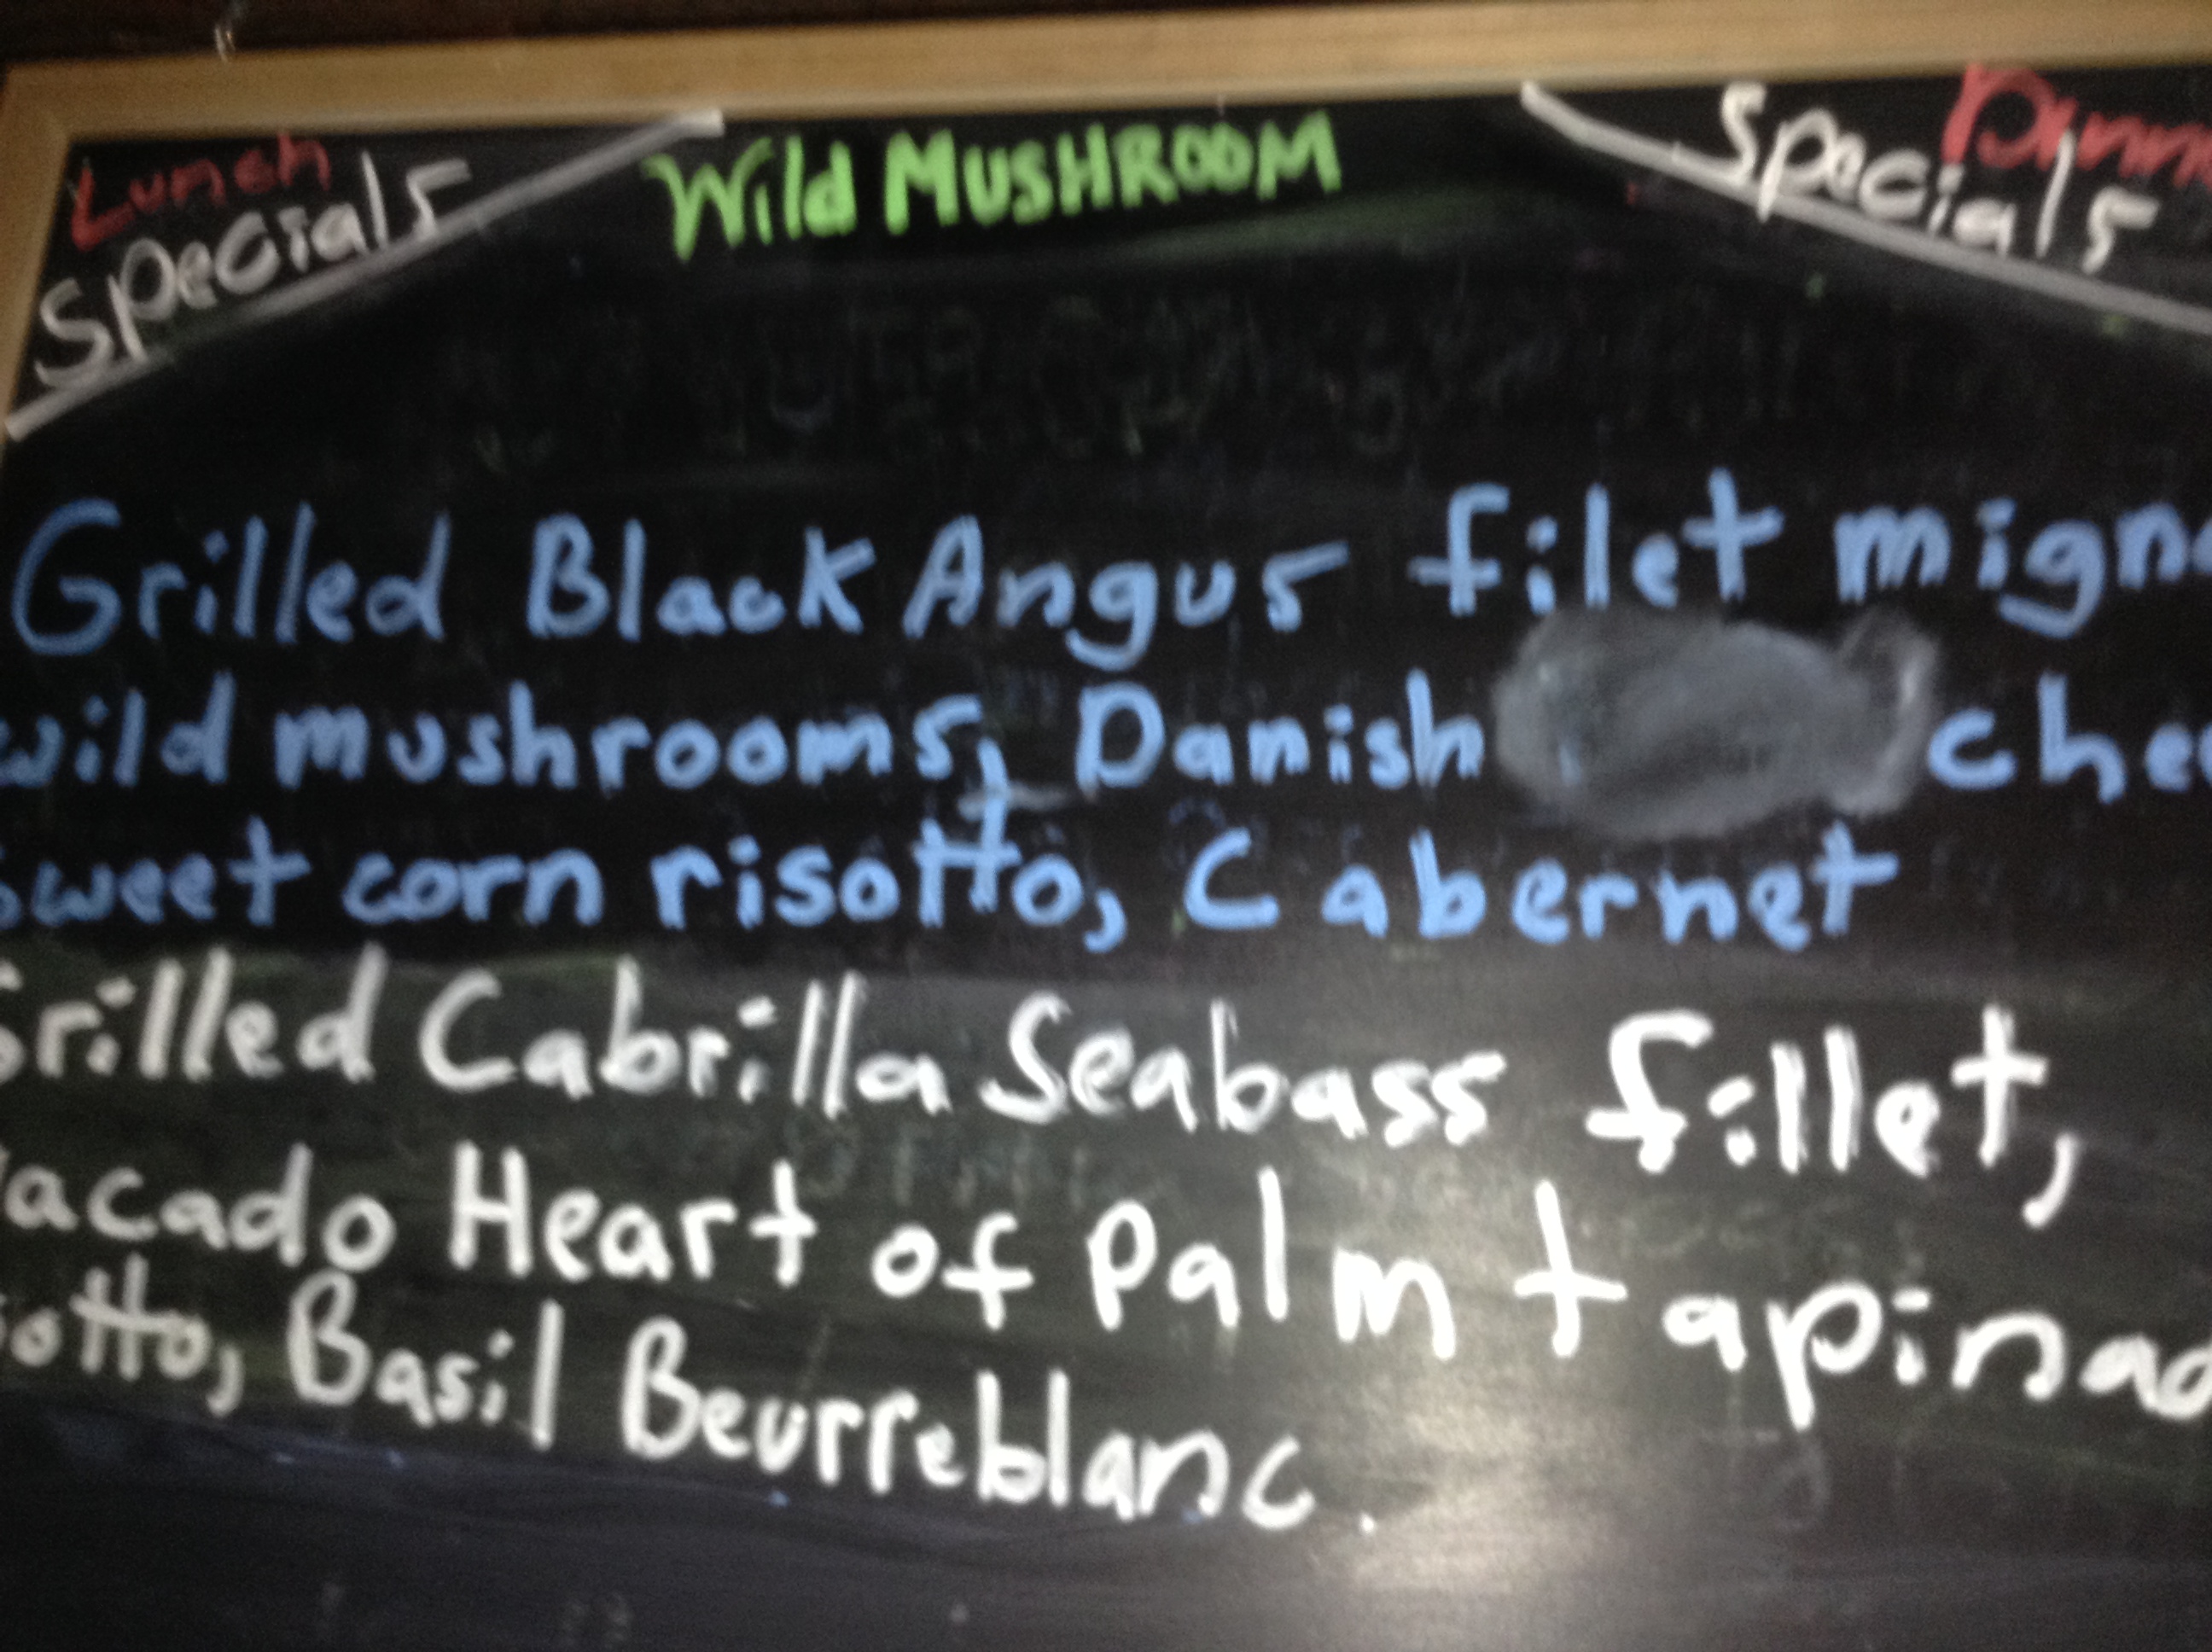 Lunch
Specials
Wild MUSHROOM
Dinn
Specials
Grilled Black Angus filet mign
wild mushrooms, Danish che
sweet corn risotto, Cabernet
Grilled Cabrilla Seabass fillet,
acado Heart of Palm tapinad
otto, Basil Beurreblanc.